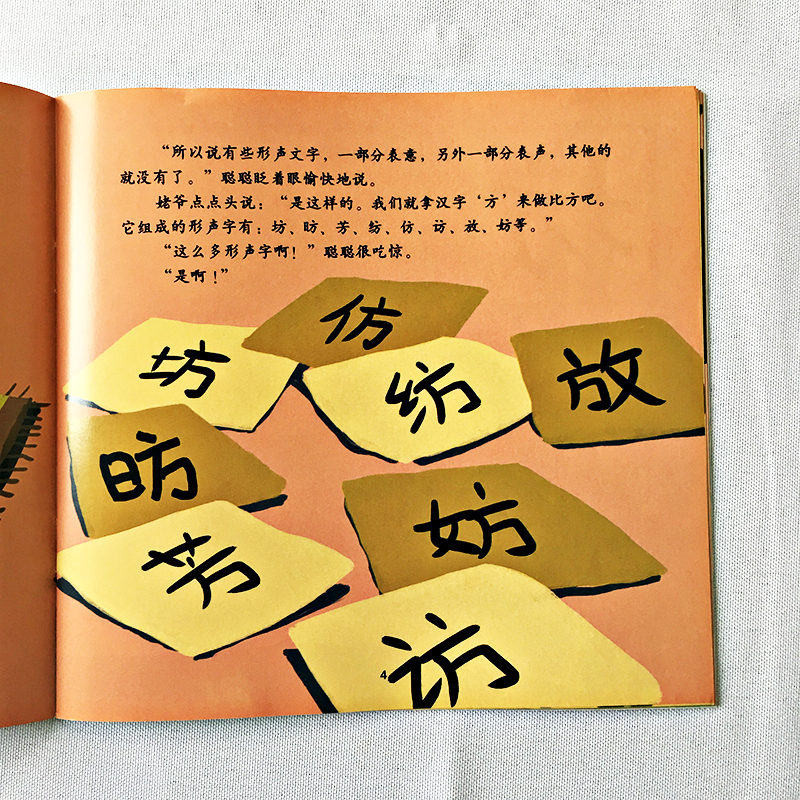 “所以说有些形声文字，一部分表意，另外一部分表声，其他的
就没有了。”聪聪眨着眼愉快地说。
姥爷点点头说：“是这样的。我们就拿汉字‘方’来做比方吧。
它组成的形声字有：坊、昉、芳、纺、仿、访、放、妨等。”
“这么多形声字啊！”聪聪很吃惊。
“是啊！”
仿
坊
纺
放
昉
妨
芳
访
4